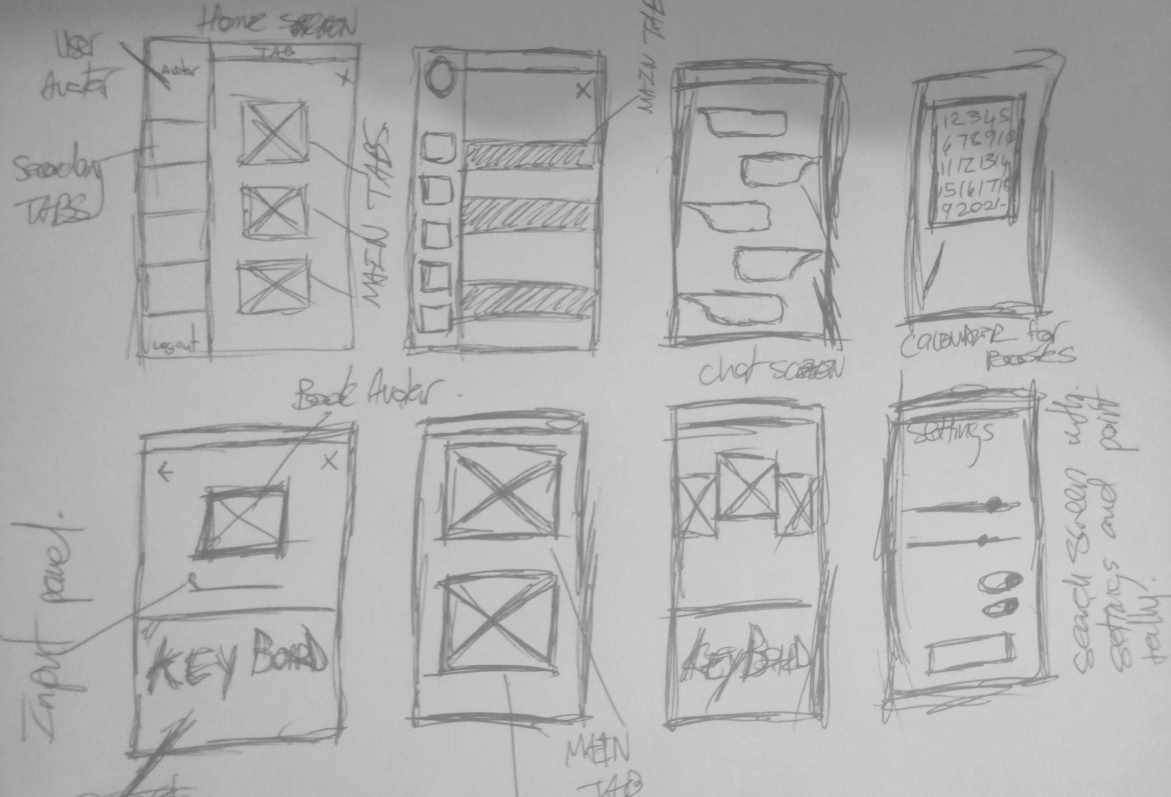 Home SCREEN
User
Avatar
TAB
Avatar
X
Secondary
TABS
MAIN TABS
Logout
X
MAIN TAB
chat SCREEN
12345
678910
11121314
15161718
92021
CALENDAR for
Books
Book Avatar
←
X
Input panel.
KEY BOARD
MAIN
TAB
KEYBOARD
settings
search screen with
settings and point
tally.